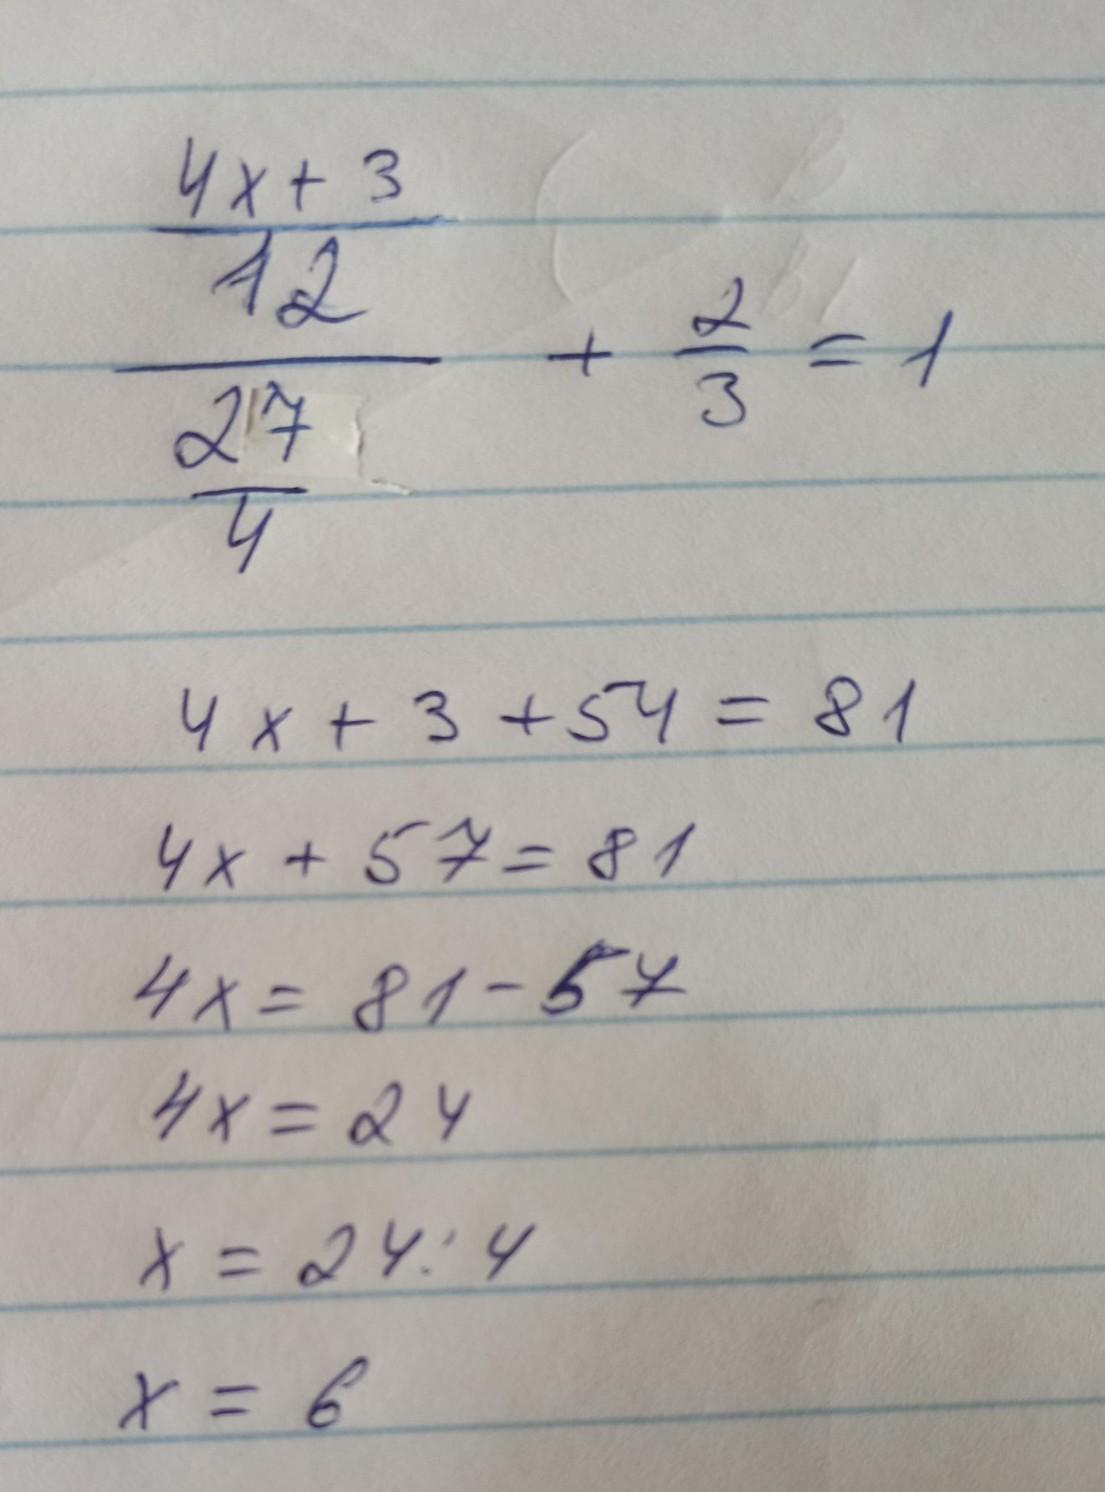 4x+3
12
27
4
+ 2/3 = 1
4x + 3 + 54 = 81
4x + 57 = 81
4x = 81 - 57
4x = 24
x = 24 : 4
x = 6